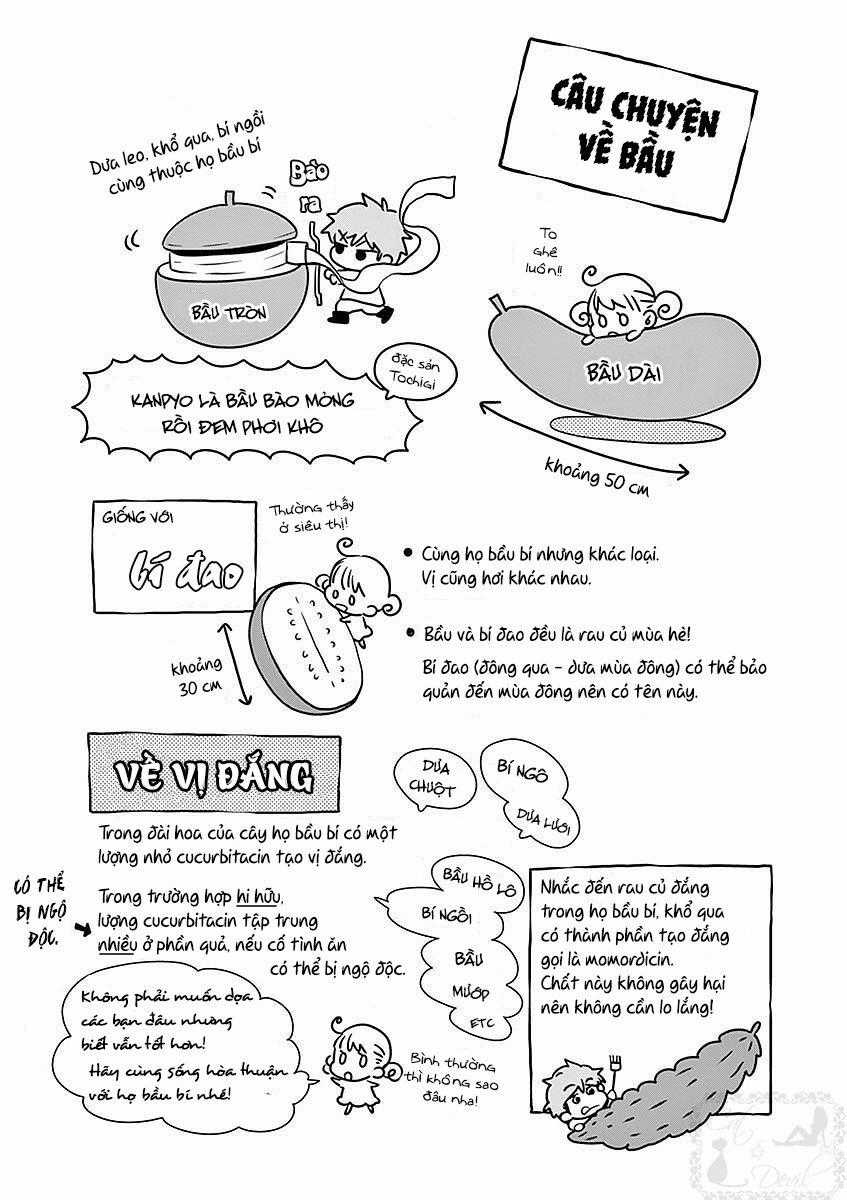 CÂU CHUYỆN
VỀ BẦU
Dưa leo, khổ qua, bí ngòi
cùng thuộc họ bầu bí
Bào
ra
BẦU TRÒN
To
ghê
luôn!!
BẦU DÀI
khoảng 50 cm
đặc sản
Tochigi
KANPYO LÀ BẦU BÀO MỎNG
RỒI ĐEM PHƠI KHÔ
GIỐNG VỚI
bí đao
Thường thấy
ở siêu thị!
khoảng
30 cm
• Cùng họ bầu bí nhưng khác loại.
Vị cũng hơi khác nhau.
• Bầu và bí đao đều là rau củ mùa hè!
Bí đao (đông qua - dưa mùa đông) có thể bảo
quản đến mùa đông nên có tên này.
VỀ VỊ ĐẮNG
Trong đài hoa của cây họ bầu bí có một
lượng nhỏ cucurbitacin tạo vị đắng.
CÓ THỂ
BỊ NGỘ
ĐỘC.
Trong trường hợp hi hữu,
lượng cucurbitacin tập trung
nhiều ở phần quả, nếu cố tình ăn
có thể bị ngộ độc.
DƯA
CHUỘT
BÍ NGÔ
DƯA LƯỚI
BẦU HỒ LÔ
BÍ NGÒI
BẦU
MƯỚP
ETC
Không phải muốn dọa
các bạn đâu nhưng
biết vẫn tốt hơn!
Hãy cùng sống hòa thuận
với họ bầu bí nhé!
Bình thường
thì không sao
đâu nha!
Nhắc đến rau củ đắng
trong họ bầu bí, khổ qua
có thành phần tạo đắng
gọi là momordicin.
Chất này không gây hại
nên không cần lo lắng!
Devil